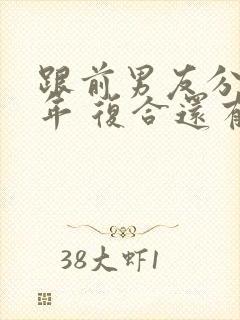 跟前男友分
年 復合還有
38大虾1